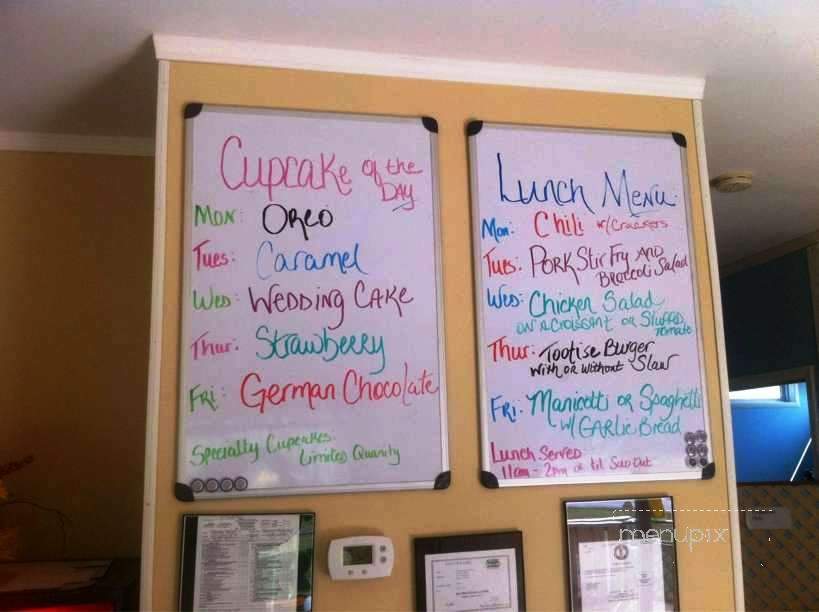 Cupcake of the
Day
Mon: Oreo
Tues: Caramel
Wed: Wedding Cake
Thur: Strawberry
Fri: German Chocolate
Specialty Cupcakes
Limited Quanity
Lunch Menu
Mon: Chili w/Crackers
Tues: Pork Stir Fry And
Broccoli Salad
Wed: Chicken Salad
on a Croissant or Stuffed
Tomato
Thur: Tootise Burger
with or without Slaw
Fri: Manicotti or Spaghetti
w/ Garlic Bread
Lunch Served
11am - 2pm or til Sold Out
menupix